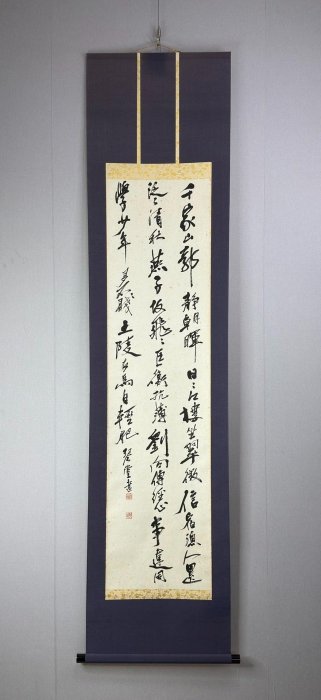 千家山郭靜朝暉日々江樓坐翠微信宿漁人還
泛々清秋燕子故飛々匡衡抗劉向傳經心事違同
學少年多不賤五陵衣馬自輕肥